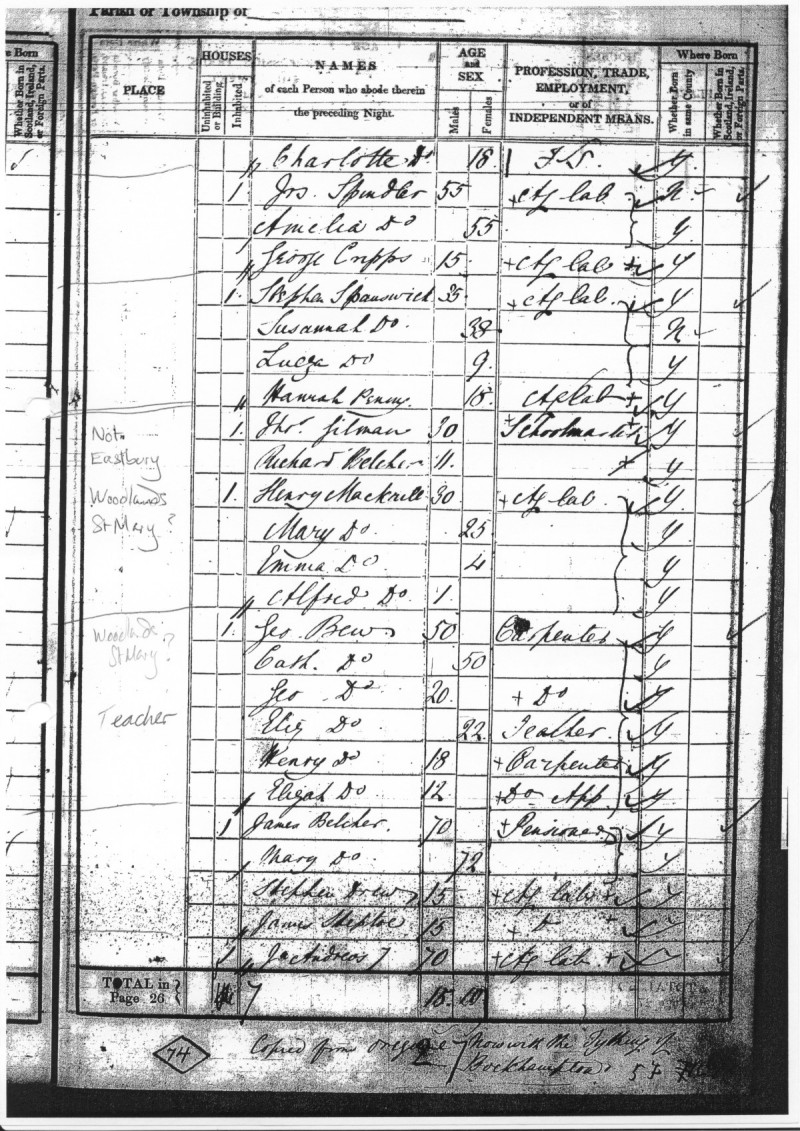 Parish or Township of
Where Born
Whether Born in Scotland, Ireland, or Foreign Parts.
PLACE
HOUSES
Uninhabited or Building
Inhabited
NAMES
of each Person who abode therein
the preceding Night.
AGE and SEX
Males
Females
PROFESSION, TRADE,
EMPLOYMENT,
or of
INDEPENDENT MEANS.
Where Born
Whether Born in same County
Whether Born in Scotland, Ireland, or Foreign Parts.
Charlotte Do 18 F.S. Y
1 Jos. Spindler 55 Ag lab N
Amelia Do 55 Y
George Cripps 15 Ag lab Y
1 Stephen Spanswick 35 Ag lab Y
Susannah Do N
Do 9 Y
Hannah Penny 15 Ag lab Y
Not 1 Gilman 30 Schoolmaster Y
Eastbury Richard Belcher 11 Y
Woodlands 1 Henry Mackrill 30 Ag lab Y
St Mary? Mary Do 25 Y
Emma Do 4 Y
Alfred Do 1 Y
Woodlands 1 Geo Brew 50 Carpenter Y
St Mary? Cath. Do 50 Y
Geo Do 20 Do Y
Teacher Eliz Do 22 Teather Y
Henry Do 18 Carpenter Y
Elijah Do 12 Do App Y
1 James Belcher 70 Pensioner Y
Mary Do 72 Y
Stephen Drew 15 Ag lab Y
James 15
1 Jas Andrews 70 Ag lab
TOTAL in Page 26 7 15 10
74
Copied from original
Now with the Tything of
Bockhampton